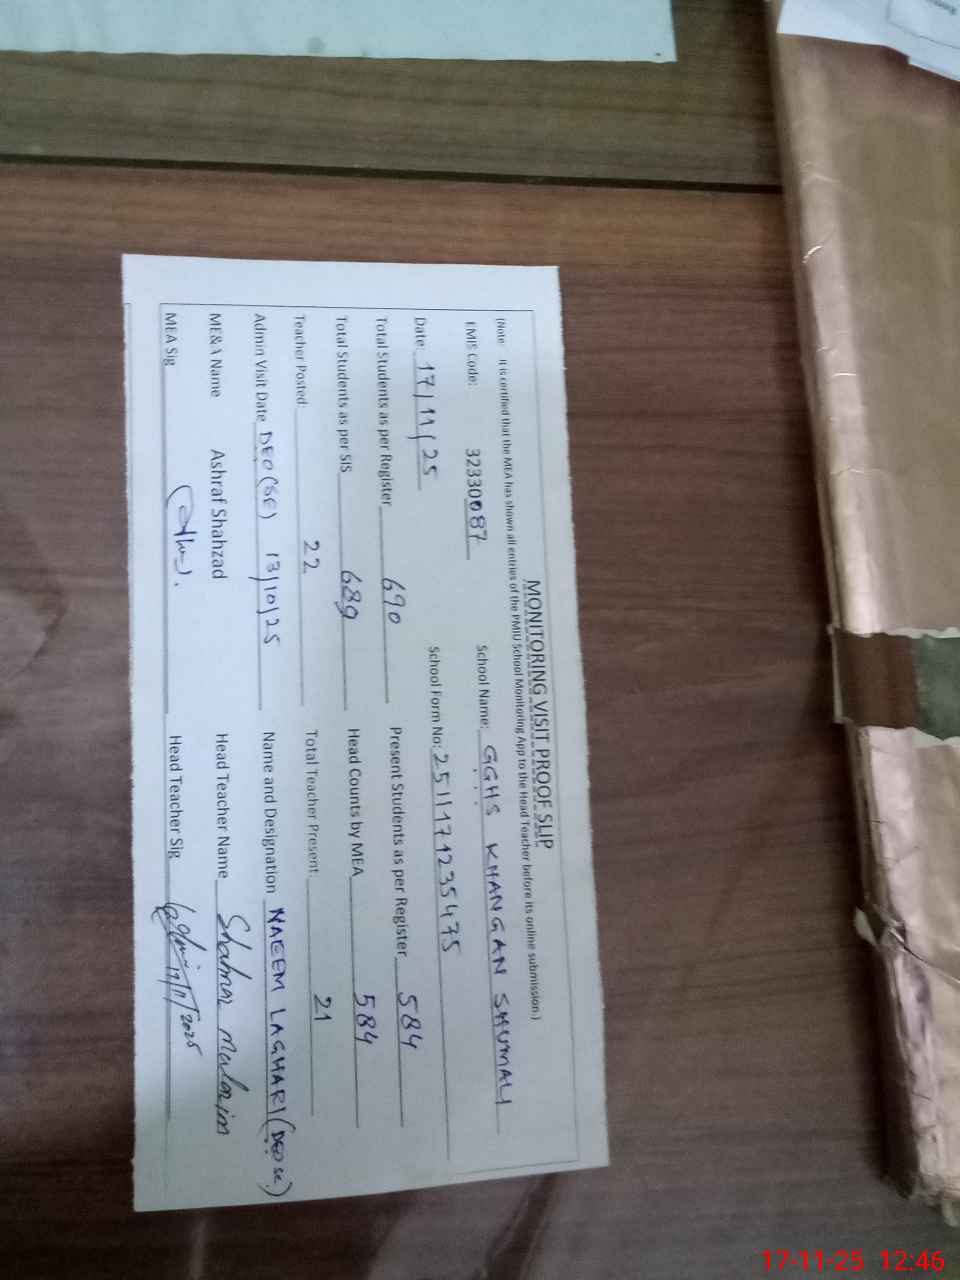 MONITORING VISIT PROOF SLIP
(Note: It is certified that the MEA has shown all entries of the PMIU School Monitoring App to the Head Teacher before its online submission.)
EMIS Code: 32330087 School Name: GGHS KHANGAN SHUMALI
Date: 17/11/25 School Form No: 2511171235475
Total Students as per Register 690 Present Students as per Register 584
Total Students as per SIS 689 Head Counts by MEA 584
Teacher Posted: 22 Total Teacher Present: 21
Admin Visit Date DEO (SE) 13/10/25 Name and Designation NAEEM LAGHARI (DEO SE.)
ME&A Name Ashraf Shahzad Head Teacher Name
MEA Sig Head Teacher Sig 17/11/2025
17-11-25 12:46